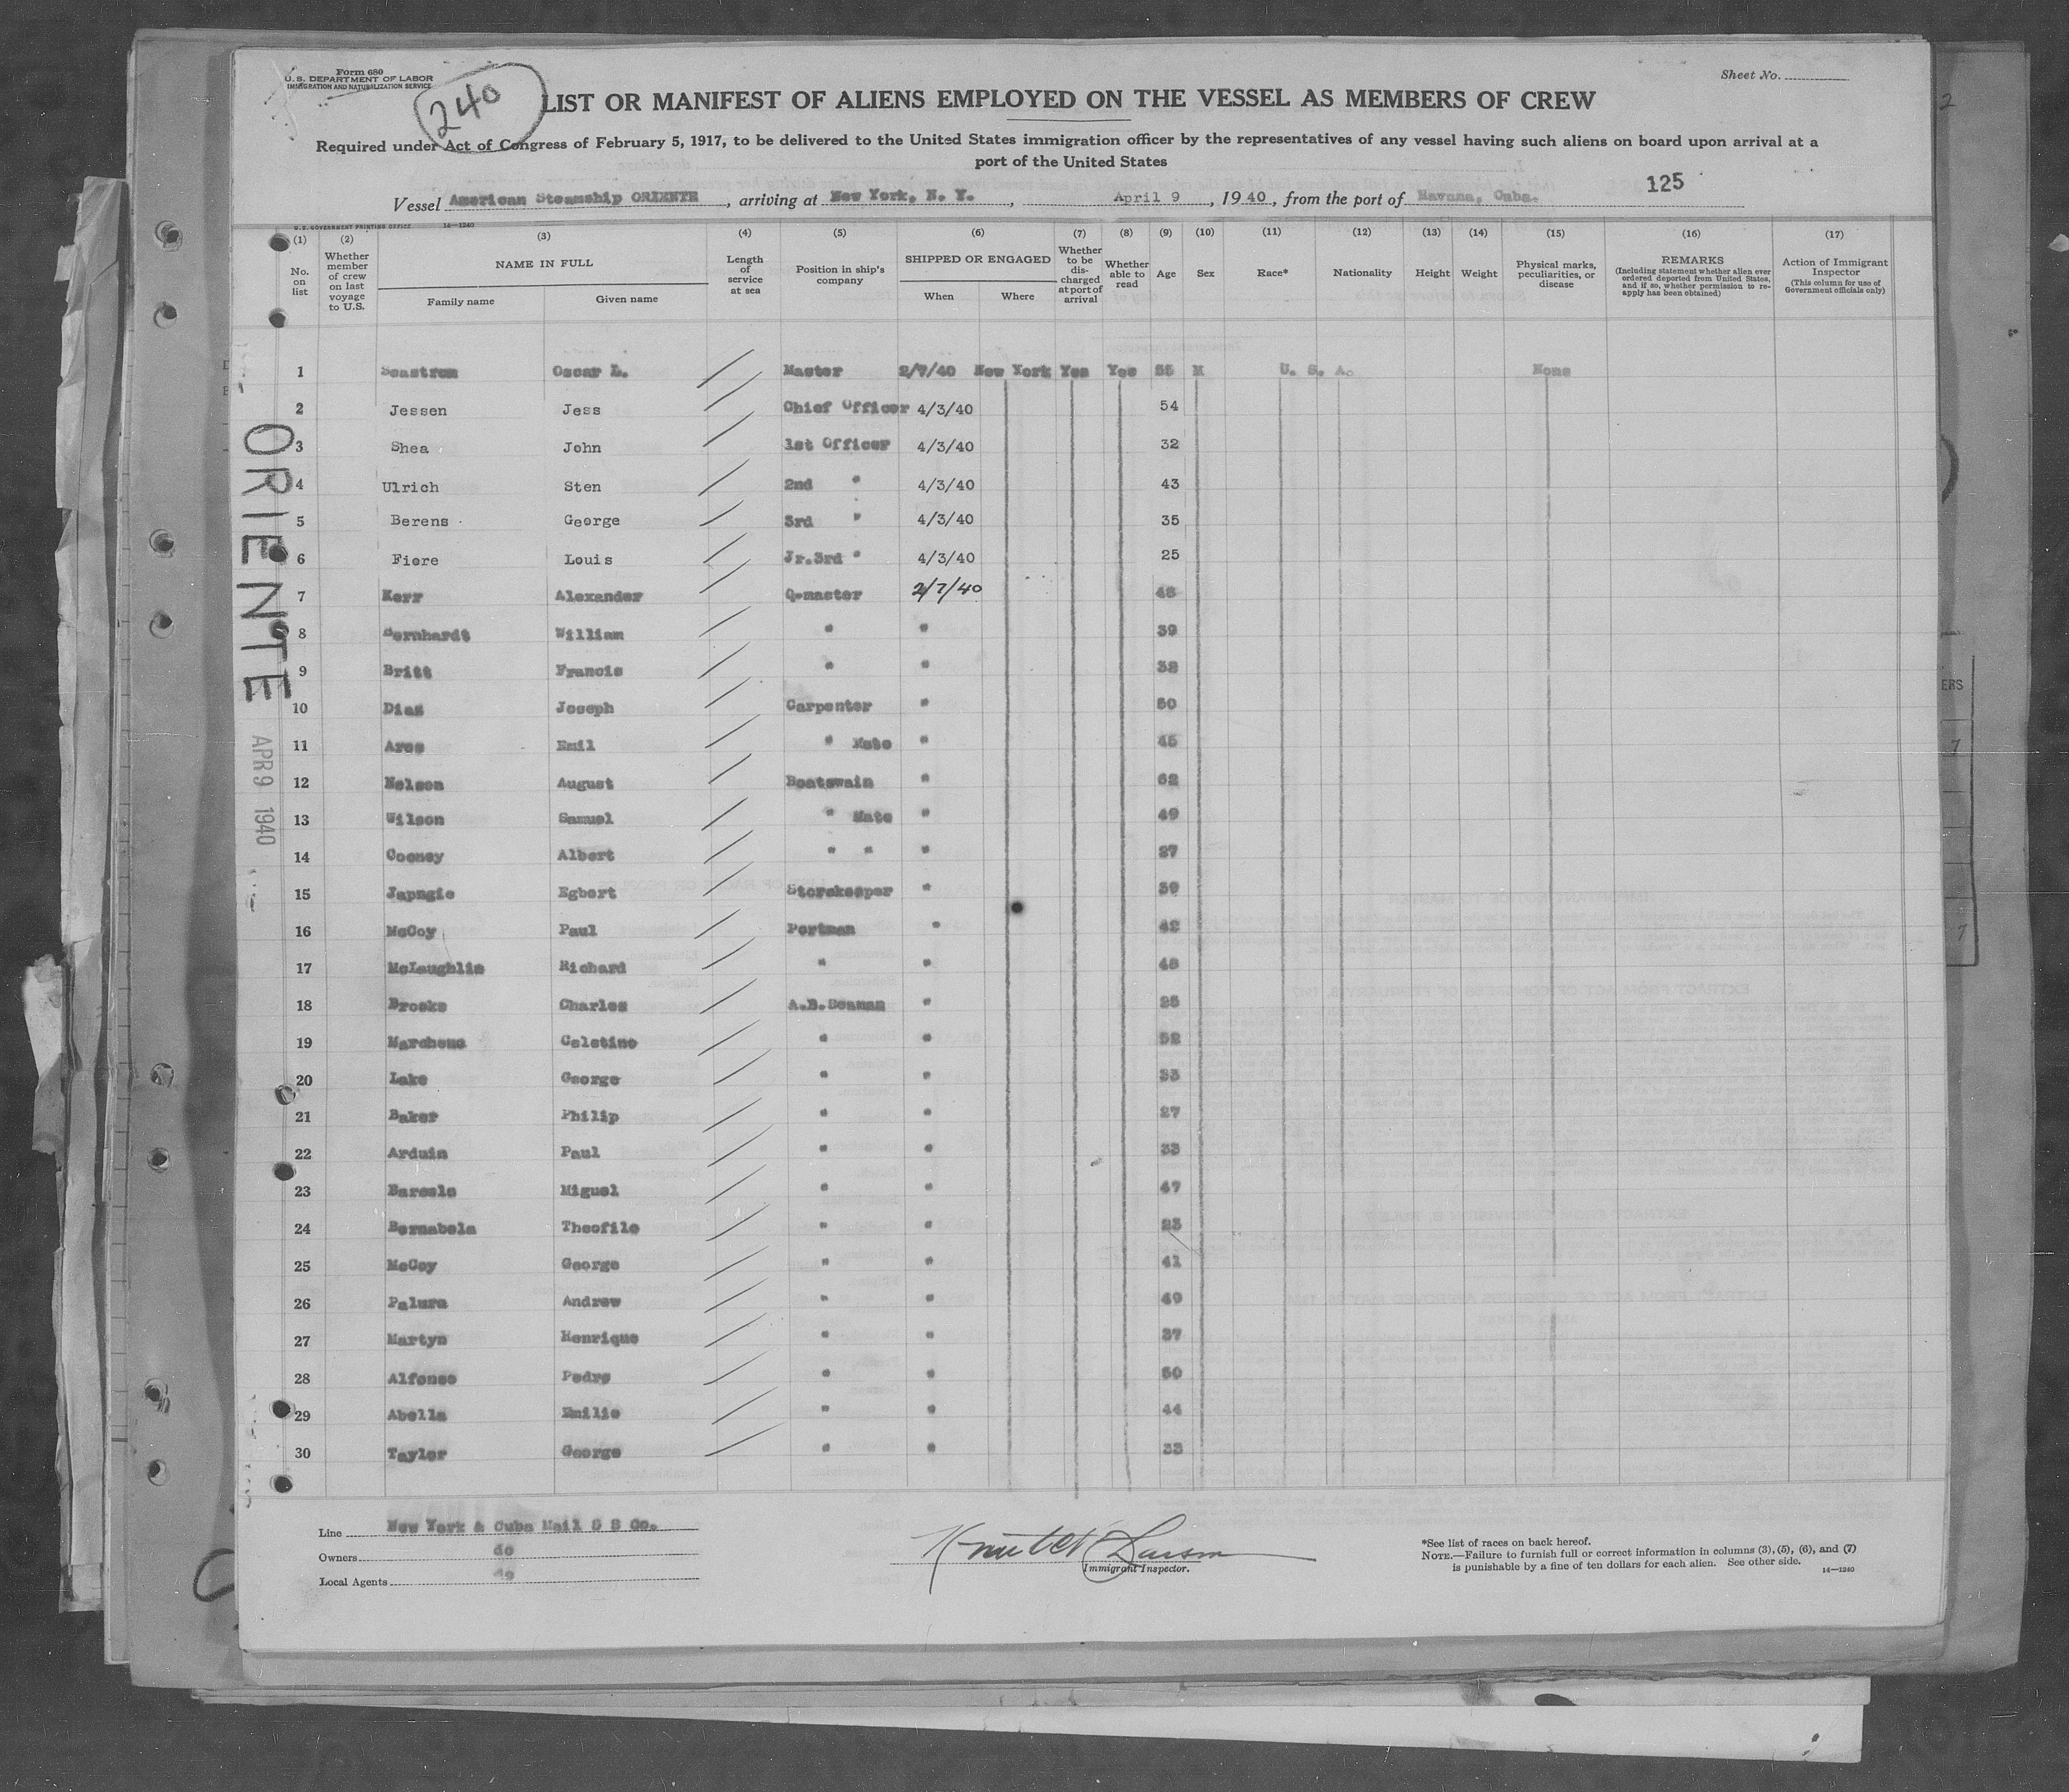 Form 680
U. S. DEPARTMENT OF LABOR
IMMIGRATION AND NATURALIZATION SERVICE
240
Sheet No.
LIST OR MANIFEST OF ALIENS EMPLOYED ON THE VESSEL AS MEMBERS OF CREW
Required under Act of Congress of February 5, 1917, to be delivered to the United States immigration officer by the representatives of any vessel having such aliens on board upon arrival at a
port of the United States
125
Vessel American Steamship ORIENTE, arriving at New York, N. Y., April 9, 1940, from the port of Havana, Cuba.
U.S. GOVERNMENT PRINTING OFFICE 14—1240
(1) No. on list
(2) Whether member of crew on last voyage to U.S.
(3) NAME IN FULL Family name Given name
(4) Length of service at sea
(5) Position in ship's company
(6) SHIPPED OR ENGAGED When Where
(7) Whether to be discharged at port of arrival
(8) Whether able to read
(9) Age
(10) Sex
(11) Race*
(12) Nationality
(13) Height
(14) Weight
(15) Physical marks, peculiarities, or disease
(16) REMARKS (Including statement whether alien ever ordered deported from United States, and if so, whether permission to re-apply has been obtained)
(17) Action of Immigrant Inspector (This column for use of Government officials only)
1 Seastrom Oscar L. Master 2/7/40 New York Yes Yes 55 M U. S. A. None
2 Jessen Jess Chief Officer 4/3/40 54
3 Shea John 1st Officer 4/3/40 32
4 Ulrich Sten 2nd " 4/3/40 43
5 Berens George 3rd " 4/3/40 35
6 Fiore Louis Jr.3rd " 4/3/40 25
7 Kerr Alexander Q-master 2/7/40 48
8 Bernhardt William " " 39
9 Britt Francis " "
10 Diaz Joseph Carpenter " 50
11 Ares Emil " Mate " 45
12 Nelson August Boatswain " 62
13 Wilson Samuel " Mate " 49
14 Cooney Albert " " " 27
15 Japngie Egbert Storekeeper " 39
16 McCoy Paul Portman " 42
17 McLaughlin Richard " " 48
18 Broske Charles A.B.Seaman " 25
19 Celstino " " 52
20 Lake George " " 33
21 Baker Philip " " 27
22 Arduin Paul " " 33
23 Miguel " " 47
24 Bernabela Theofilo " "
25 McCoy George " " 41
26 Andrew " " 49
27 Martyn Henrique " " 37
28 Alfonso Pedro " " 50
29 Abella Emilio " " 44
30 Taylor George " " 33
ORIENTE
APR 9 1940
Line New York & Cuba Mail S S Co.
Owners do
Local Agents do
Immigrant Inspector.
*See list of races on back hereof.
NOTE.—Failure to furnish full or correct information in columns (3), (5), (6), and (7)
is punishable by a fine of ten dollars for each alien. See other side.
14—1240